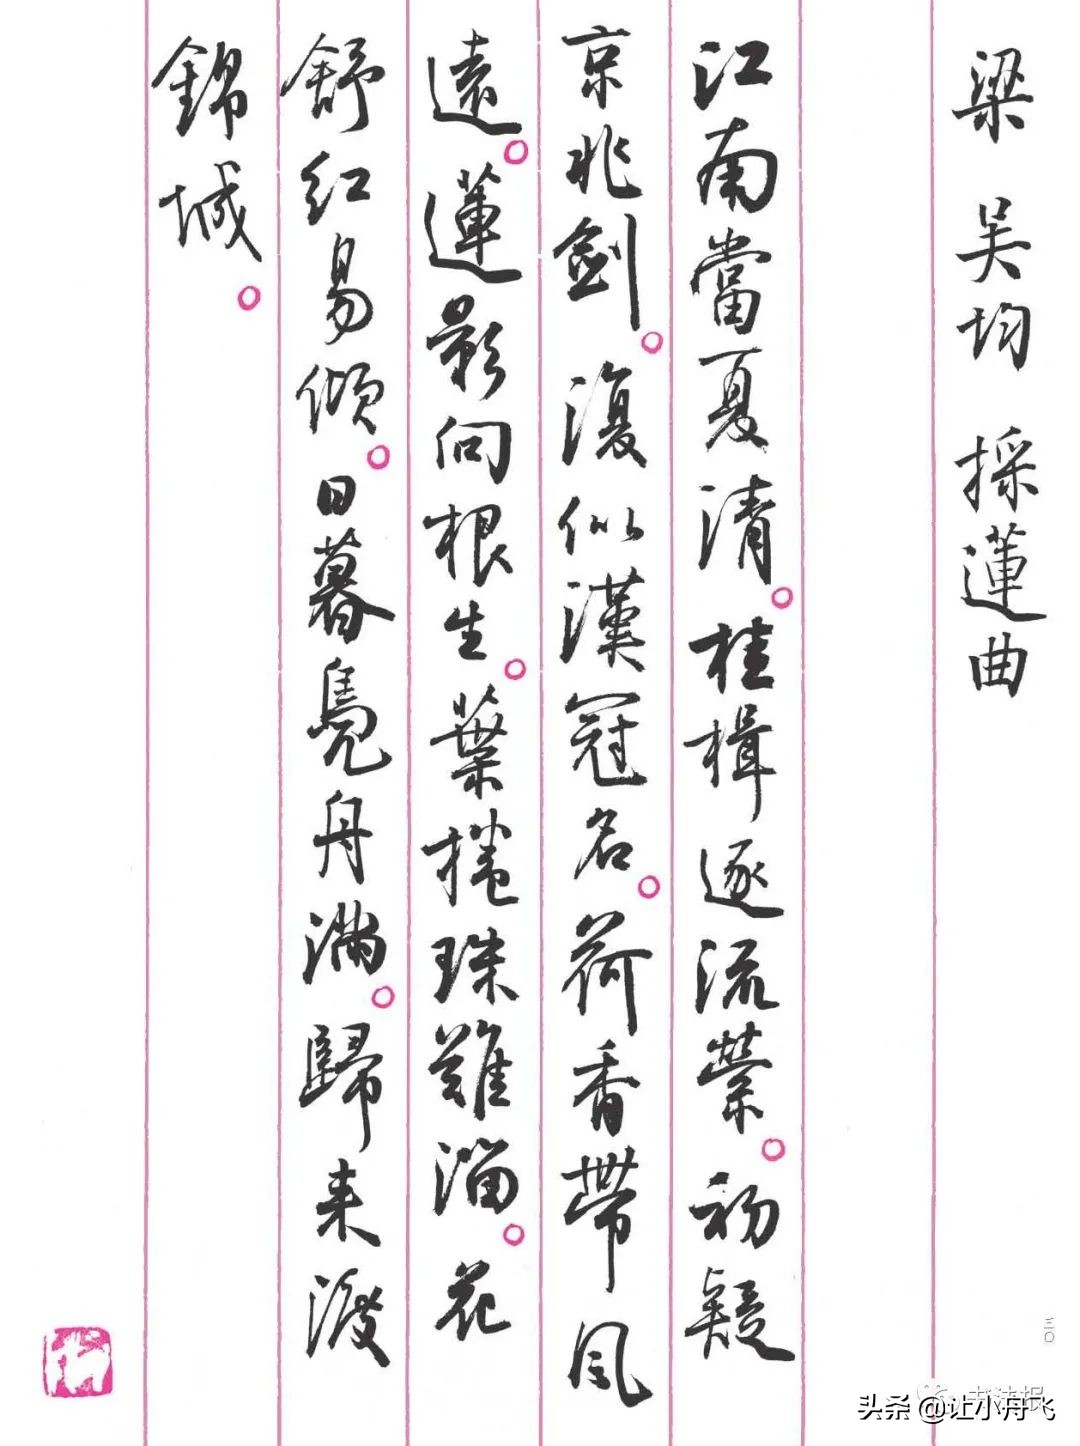 梁 吴均 採蓮曲
江南當夏清。桂楫逐流縈。初疑
京兆劍。復似漢冠名。荷香帶風
遠。蓮影向根生。葉捲珠難溜。花
舒紅易傾。日暮鳧舟滿。歸来渡
錦城。
三〇
书法报
头条 @让小舟飞